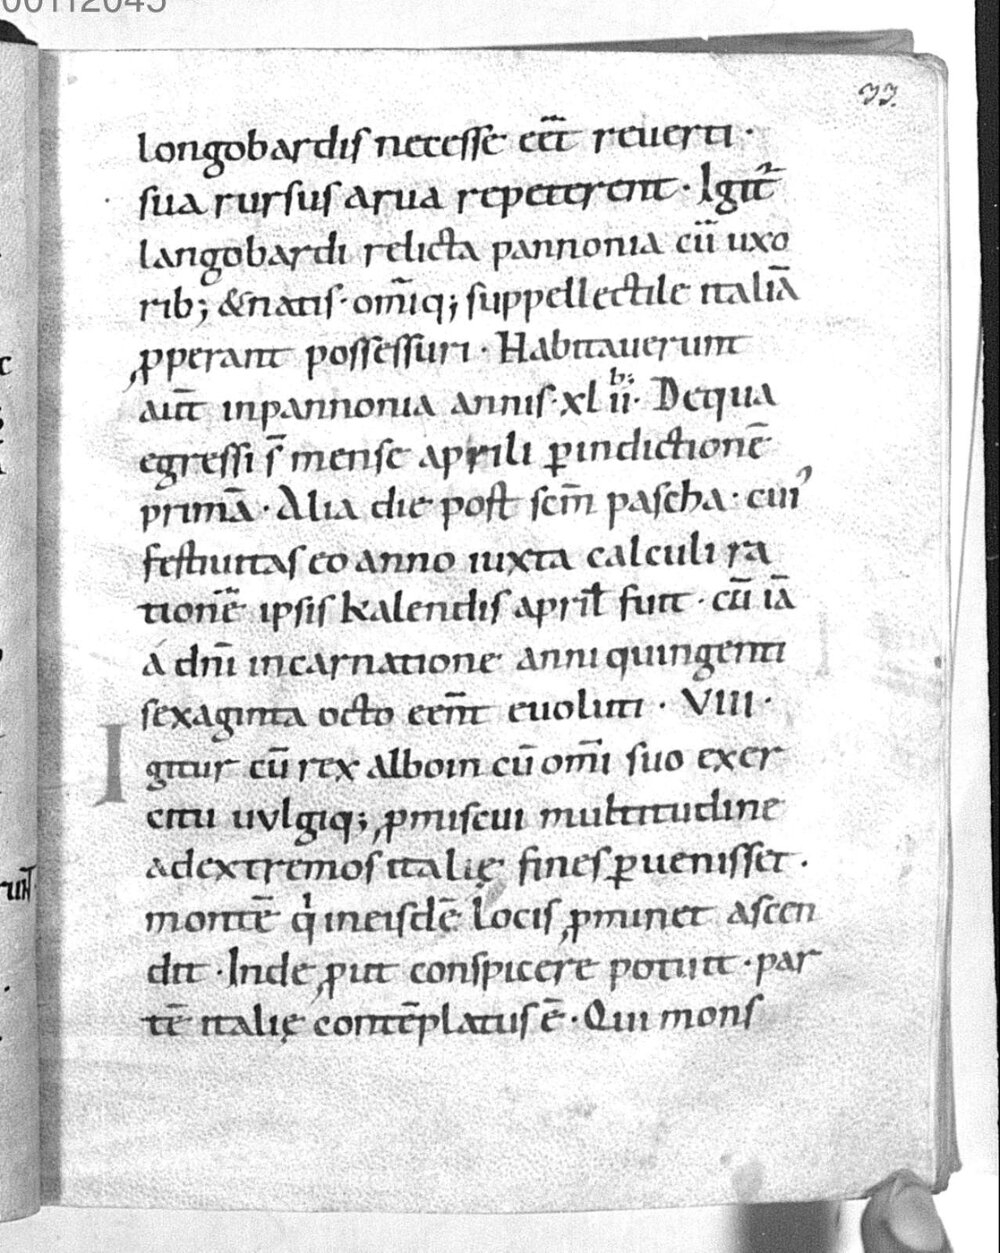 33.
longobardis necesse eēt reuerti ·
sua rursus arua repeterent · Igit᷑
langobardi relicta pannonia cū uxo
rib; & natis · om̄iq; suppellectile italiā
ꝓperant possessuri · Habitauerunt
aut̄ inpannonia annis · xl ii b; · Dequa
egressi s̄ mense aprili ꝑindictionē
primā · Alia die post scm̄ pascha · cui᾽
festiuitas eo anno iuxta calculi ra
tionē ipsis kalendis april̄ fuit · cū iā
á dn̄i incarnatione anni quingenti
sexaginta octo eēnt euoluti · VIII ·
Igitur cū rex alboin cū om̄i suo exer
citu uulgiq; ꝓmiscui multitudine
adextremos italię fines ꝑuenisset ·
montē q̇ ineisdē locis ꝓminet ascen
dit · Inde ꝓut conspicere potuit · par
tē italię contēplatus ē · Qui mons